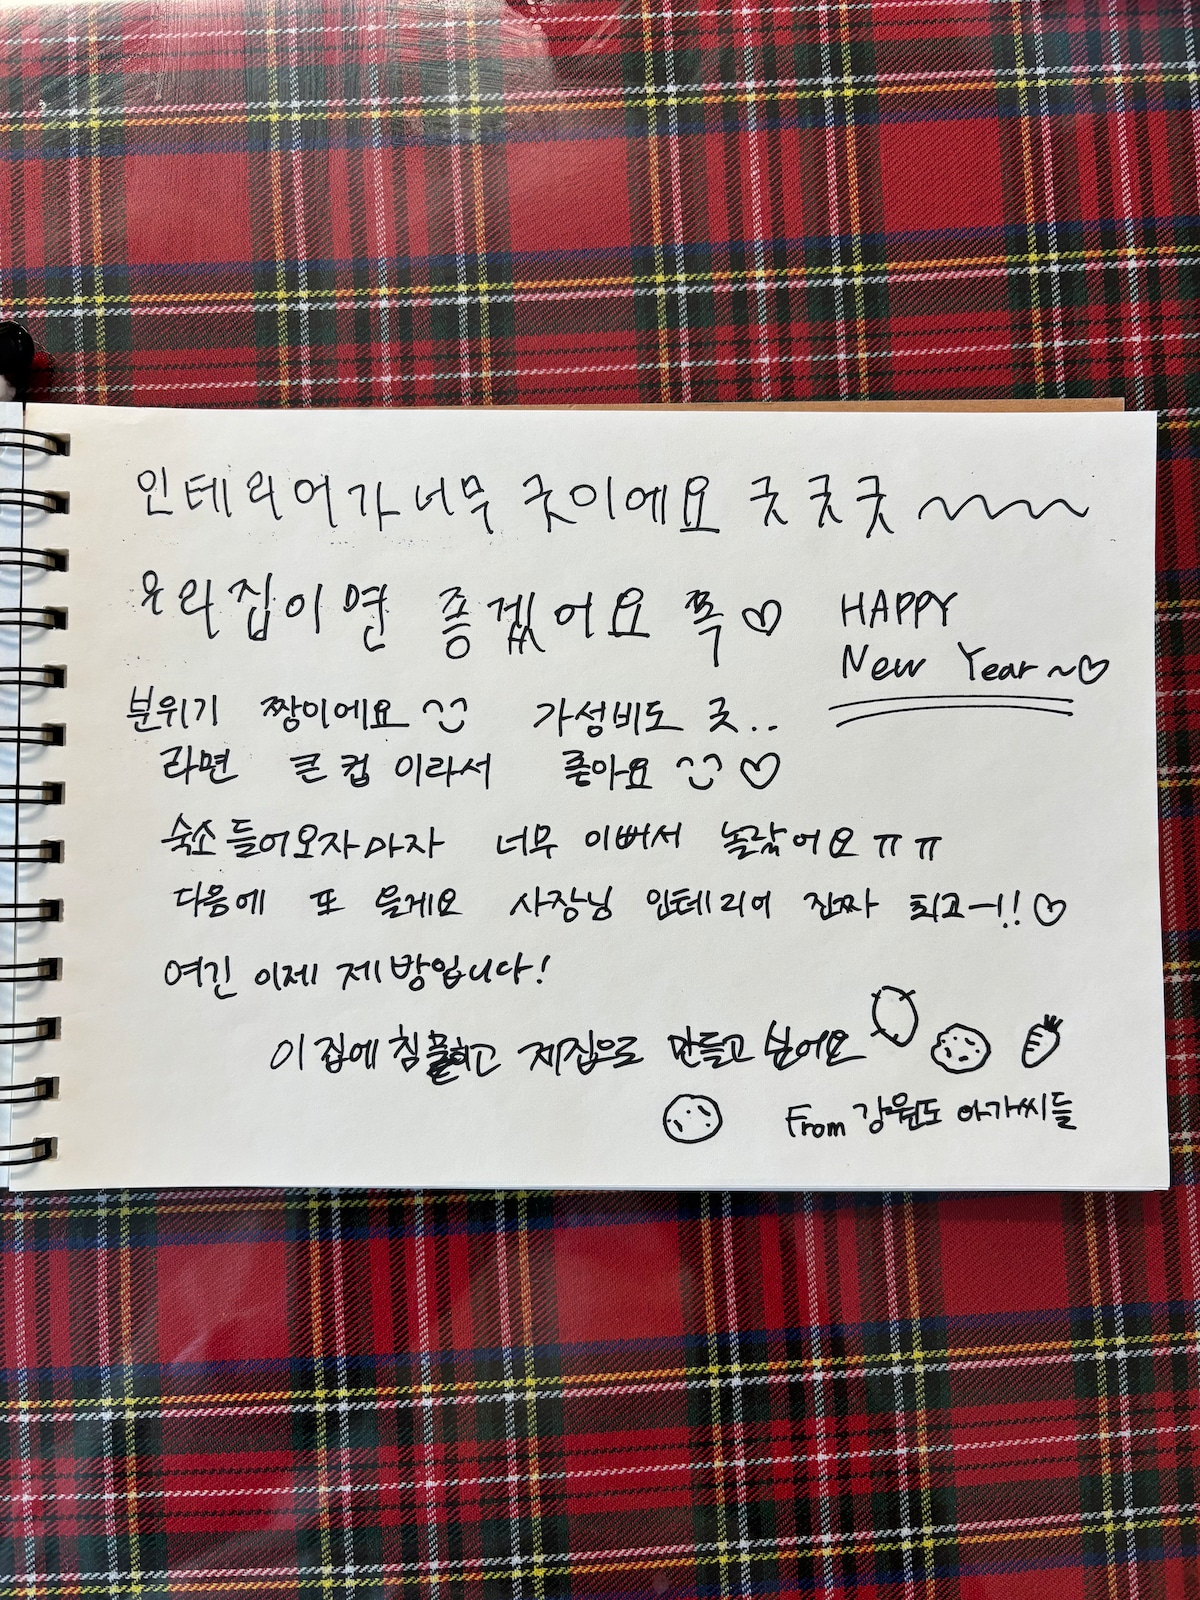 인테리어가 너무 굿이에요 굿 굿 굿 ~~~
우리집이면 좋겠어요 쪽♡
HAPPY
New Year ~♡
분위기 짱이에요 ^^ 가성비도 굿..
라면 큰컵이라서 좋아요 ♡
숙소 들어오자마자 너무 이뻐서 놀랐어요 ㅠㅠ
다음에 또 올게요 사장님 인테리어 진짜 최고ㅡ!! ♡
여긴 이제 제 방입니다!
이 집에 침 하고 제집으로 만들고 싶어요
From 강원도 아가씨들